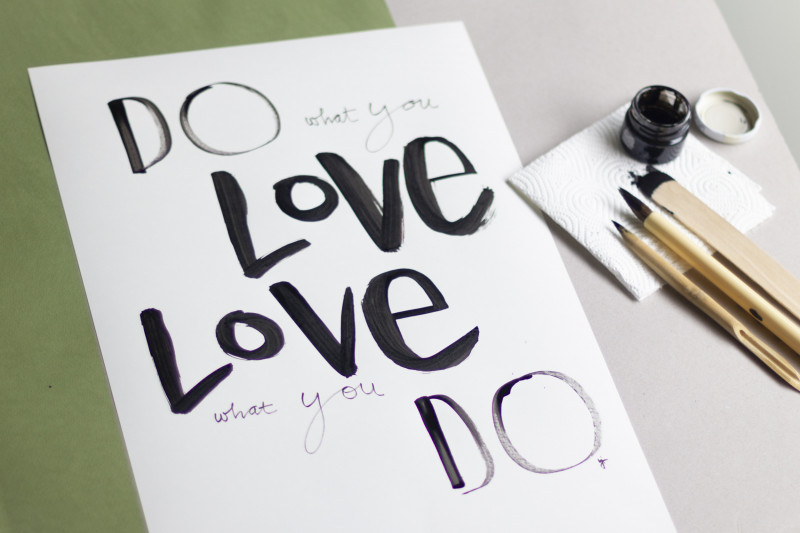 DO what you
LOVE
LOVE
what you
DO